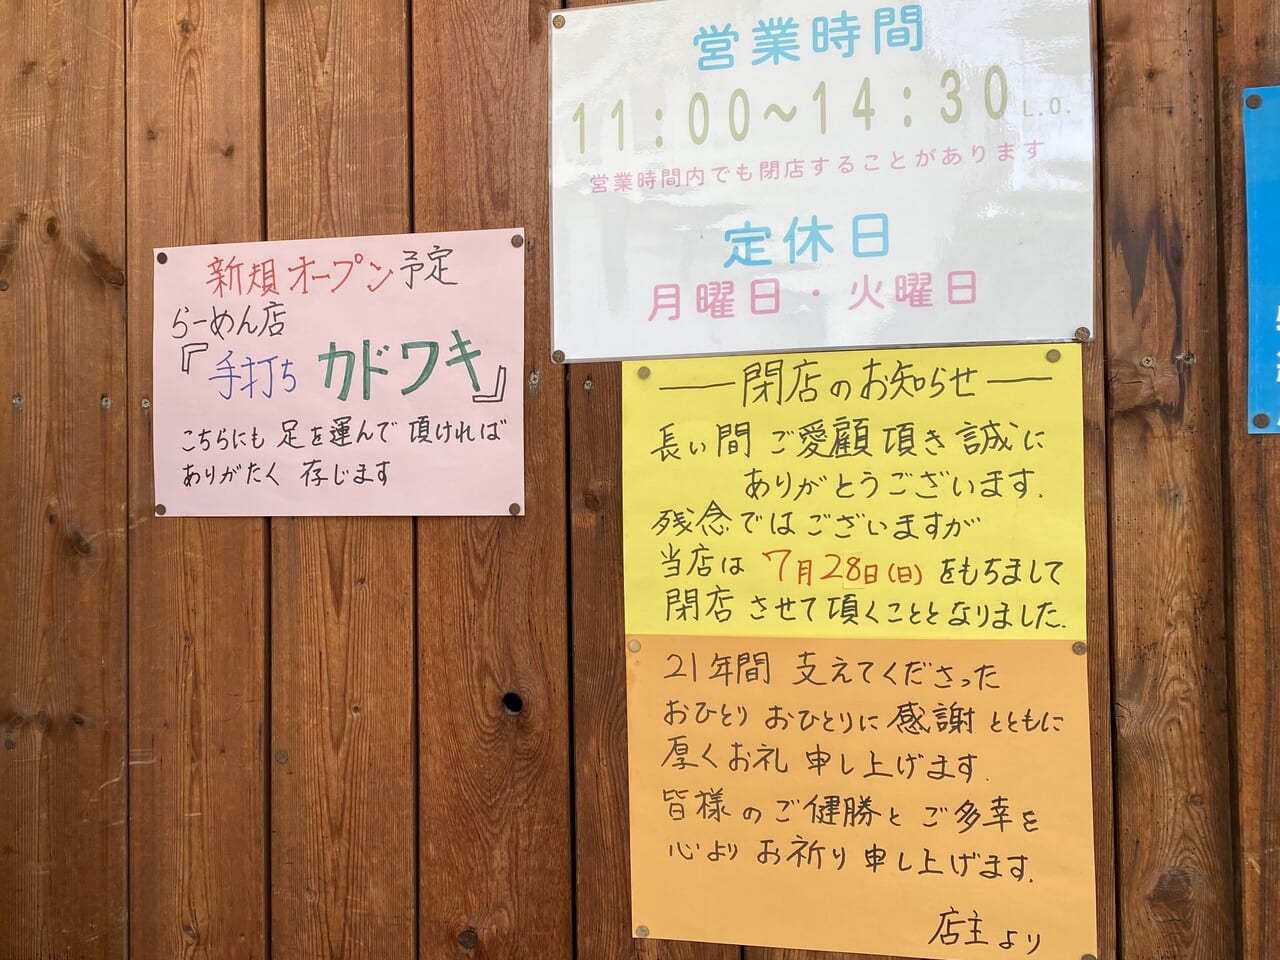 営業時間
11:00〜14:30 L.O.
営業時間内でも閉店することがあります
定休日
月曜日・火曜日
新規オープン予定
らーめん店
『手打ち カドワキ』
こちらにも足を運んで頂ければ
ありがたく 存じます
―閉店のお知らせ―
長い間 ご愛顧頂き誠に
ありがとうございます.
残念ではございますが
当店は 7月28日(日)をもちまして
閉店させて頂くこととなりました.
21年間 支えてくださった
おひとり おひとりに感謝とともに
厚くお礼 申し上げます.
皆様のご健勝とご多幸を
心よりお祈り申し上げます.
店主より